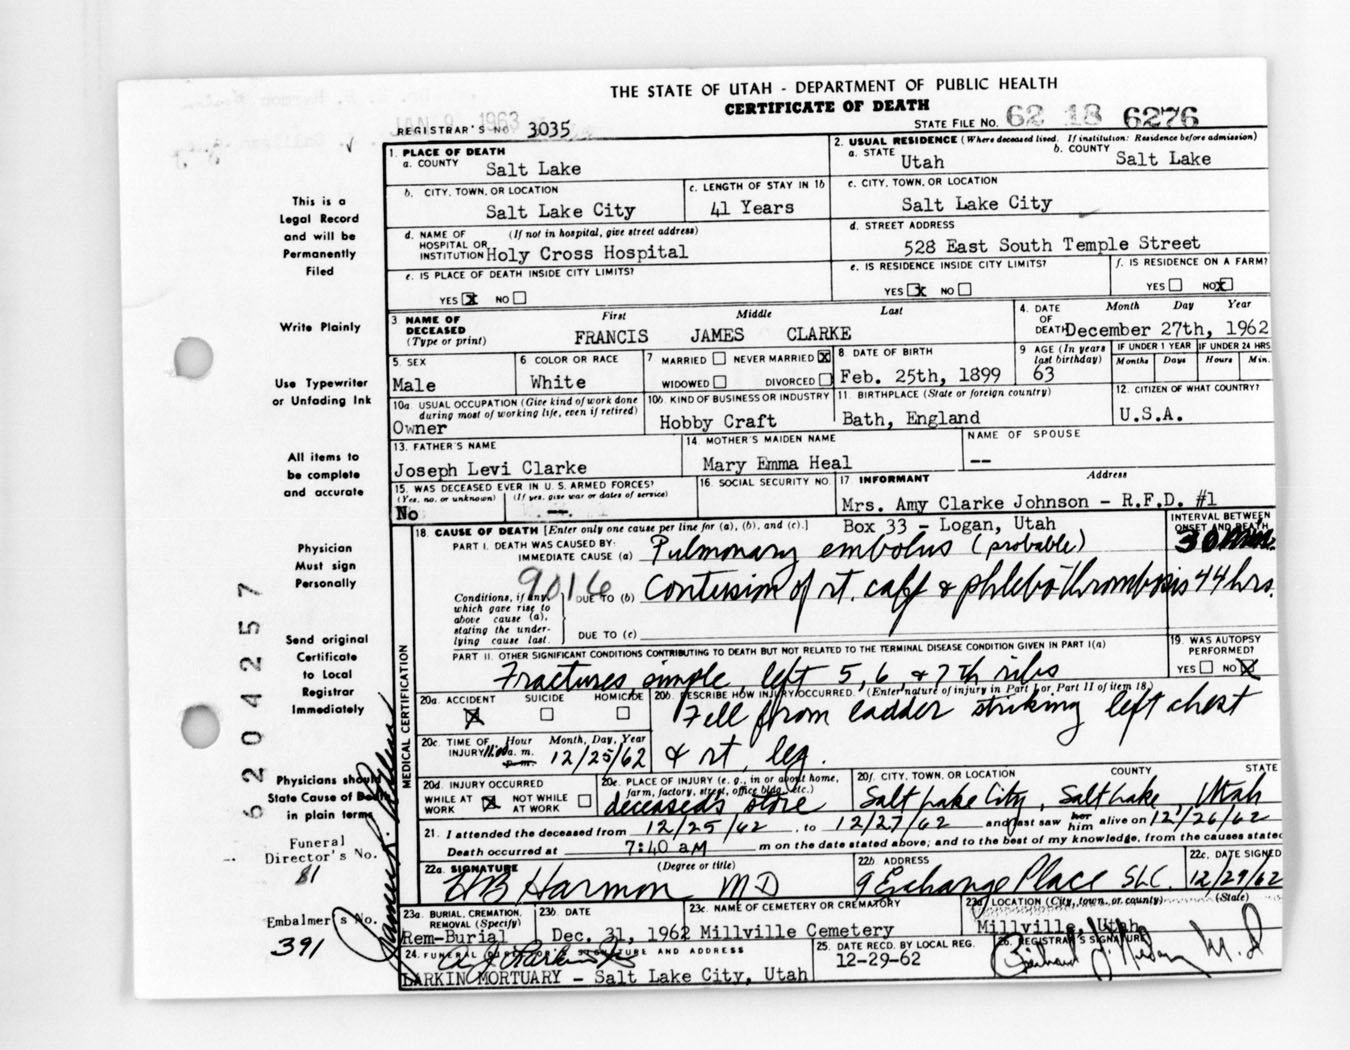 THE STATE OF UTAH - DEPARTMENT OF PUBLIC HEALTH
CERTIFICATE OF DEATH
STATE FILE NO. 62 18 6276
REGISTRAR'S NO 3035
JAN 9 1963
This is a
Legal Record
and will be
Permanently
Filed
Write Plainly
Use Typewriter
or Unfading Ink
All items to
be complete
and accurate
Physician
Must sign
Personally
Send original
Certificate
to Local
Registrar
Immediately
Physicians should
State Cause of Death
in plain terms
Funeral
Director's No.
81
Embalmer's No.
391
6204257
1. PLACE OF DEATH
a. COUNTY Salt Lake
2. USUAL RESIDENCE (Where deceased lived. If institution: Residence before admission)
a. STATE Utah
b. COUNTY Salt Lake
b. CITY, TOWN, OR LOCATION
Salt Lake City
c. LENGTH OF STAY IN 1b
41 Years
c. CITY, TOWN, OR LOCATION
Salt Lake City
d. NAME OF HOSPITAL OR INSTITUTION (If not in hospital, give street address)
Holy Cross Hospital
d. STREET ADDRESS
528 East South Temple Street
e. IS PLACE OF DEATH INSIDE CITY LIMITS?
YES X NO
e. IS RESIDENCE INSIDE CITY LIMITS?
YES X NO
f. IS RESIDENCE ON A FARM?
YES NO X
3 NAME OF DECEASED (Type or print)
First Middle Last
FRANCIS JAMES CLARKE
4. DATE OF DEATH Month Day Year
December 27th, 1962
5. SEX
Male
6 COLOR OR RACE
White
7 MARRIED NEVER MARRIED X
WIDOWED DIVORCED
8 DATE OF BIRTH
Feb. 25th, 1899
9 AGE (In years last birthday)
63
IF UNDER 1 YEAR
Months Days
IF UNDER 24 HRS
Hours Min.
10a. USUAL OCCUPATION (Give kind of work done during most of working life, even if retired)
Owner
10b. KIND OF BUSINESS OR INDUSTRY
Hobby Craft
11. BIRTHPLACE (State or foreign country)
Bath, England
12. CITIZEN OF WHAT COUNTRY?
U.S.A.
13. FATHER'S NAME
Joseph Levi Clarke
14. MOTHER'S MAIDEN NAME
Mary Emma Heal
NAME OF SPOUSE
--
15. WAS DECEASED EVER IN U. S. ARMED FORCES?
(Yes, no, or unknown) (If yes, give war or dates of service)
No --
16. SOCIAL SECURITY NO.
17 INFORMANT Address
Mrs. Amy Clarke Johnson - R.F.D. #1
Box 33 - Logan, Utah
MEDICAL CERTIFICATION
18. CAUSE OF DEATH [Enter only one cause per line for (a), (b), and (c).]
INTERVAL BETWEEN ONSET AND DEATH
PART I. DEATH WAS CAUSED BY:
IMMEDIATE CAUSE (a) Pulmonary embolus (probable) 30 Min.
9016
Conditions, if any, which gave rise to above cause (a), stating the underlying cause last.
DUE TO (b) Contusion of rt. calf & phlebothrombosis 44 hrs.
DUE TO (c)
PART II. OTHER SIGNIFICANT CONDITIONS CONTRIBUTING TO DEATH BUT NOT RELATED TO THE TERMINAL DISEASE CONDITION GIVEN IN PART I(a)
Fractures, simple, left 5, 6, & 7th ribs
19. WAS AUTOPSY PERFORMED?
YES NO X
20a. ACCIDENT SUICIDE HOMICIDE
X
20b. DESCRIBE HOW INJURY OCCURRED. (Enter nature of injury in Part I or Part II of item 18.)
Fell from ladder striking left chest
& rt. leg.
20c. TIME OF INJURY Hour Month, Day, Year
11:00 a. m. p. m. 12/25/62
20d. INJURY OCCURRED
WHILE AT WORK X NOT WHILE AT WORK
20e. PLACE OF INJURY (e. g., in or about home, farm, factory, street, office bldg., etc.)
deceased's store
20f. CITY, TOWN, OR LOCATION COUNTY STATE
Salt Lake City, Salt Lake, Utah
21. I attended the deceased from 12/25/62, to 12/27/62 and last saw her him alive on 12/26/62
Death occurred at 7:40 am m on the date stated above; and to the best of my knowledge, from the causes stated
22a. SIGNATURE (Degree or title)
Harmon MD
22b. ADDRESS
9 Exchange Place SLC.
22c. DATE SIGNED
12/29/62
23a. BURIAL, CREMATION, REMOVAL (Specify)
Rem-Burial
23b. DATE
Dec. 31, 1962
23c. NAME OF CEMETERY OR CREMATORY
Millville Cemetery
23d LOCATION (City, town, or county) (State)
Millville, Utah
24. FUNERAL DIRECTOR'S SIGNATURE AND ADDRESS
LARKIN MORTUARY - Salt Lake City, Utah
25. DATE RECD. BY LOCAL REG.
12-29-62
26. REGISTRAR'S SIGNATURE
M.D